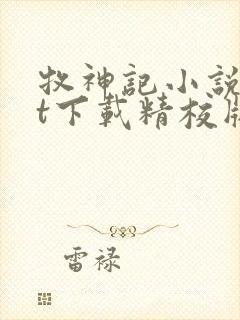 牧神記小說
t下載精校版
雷禄